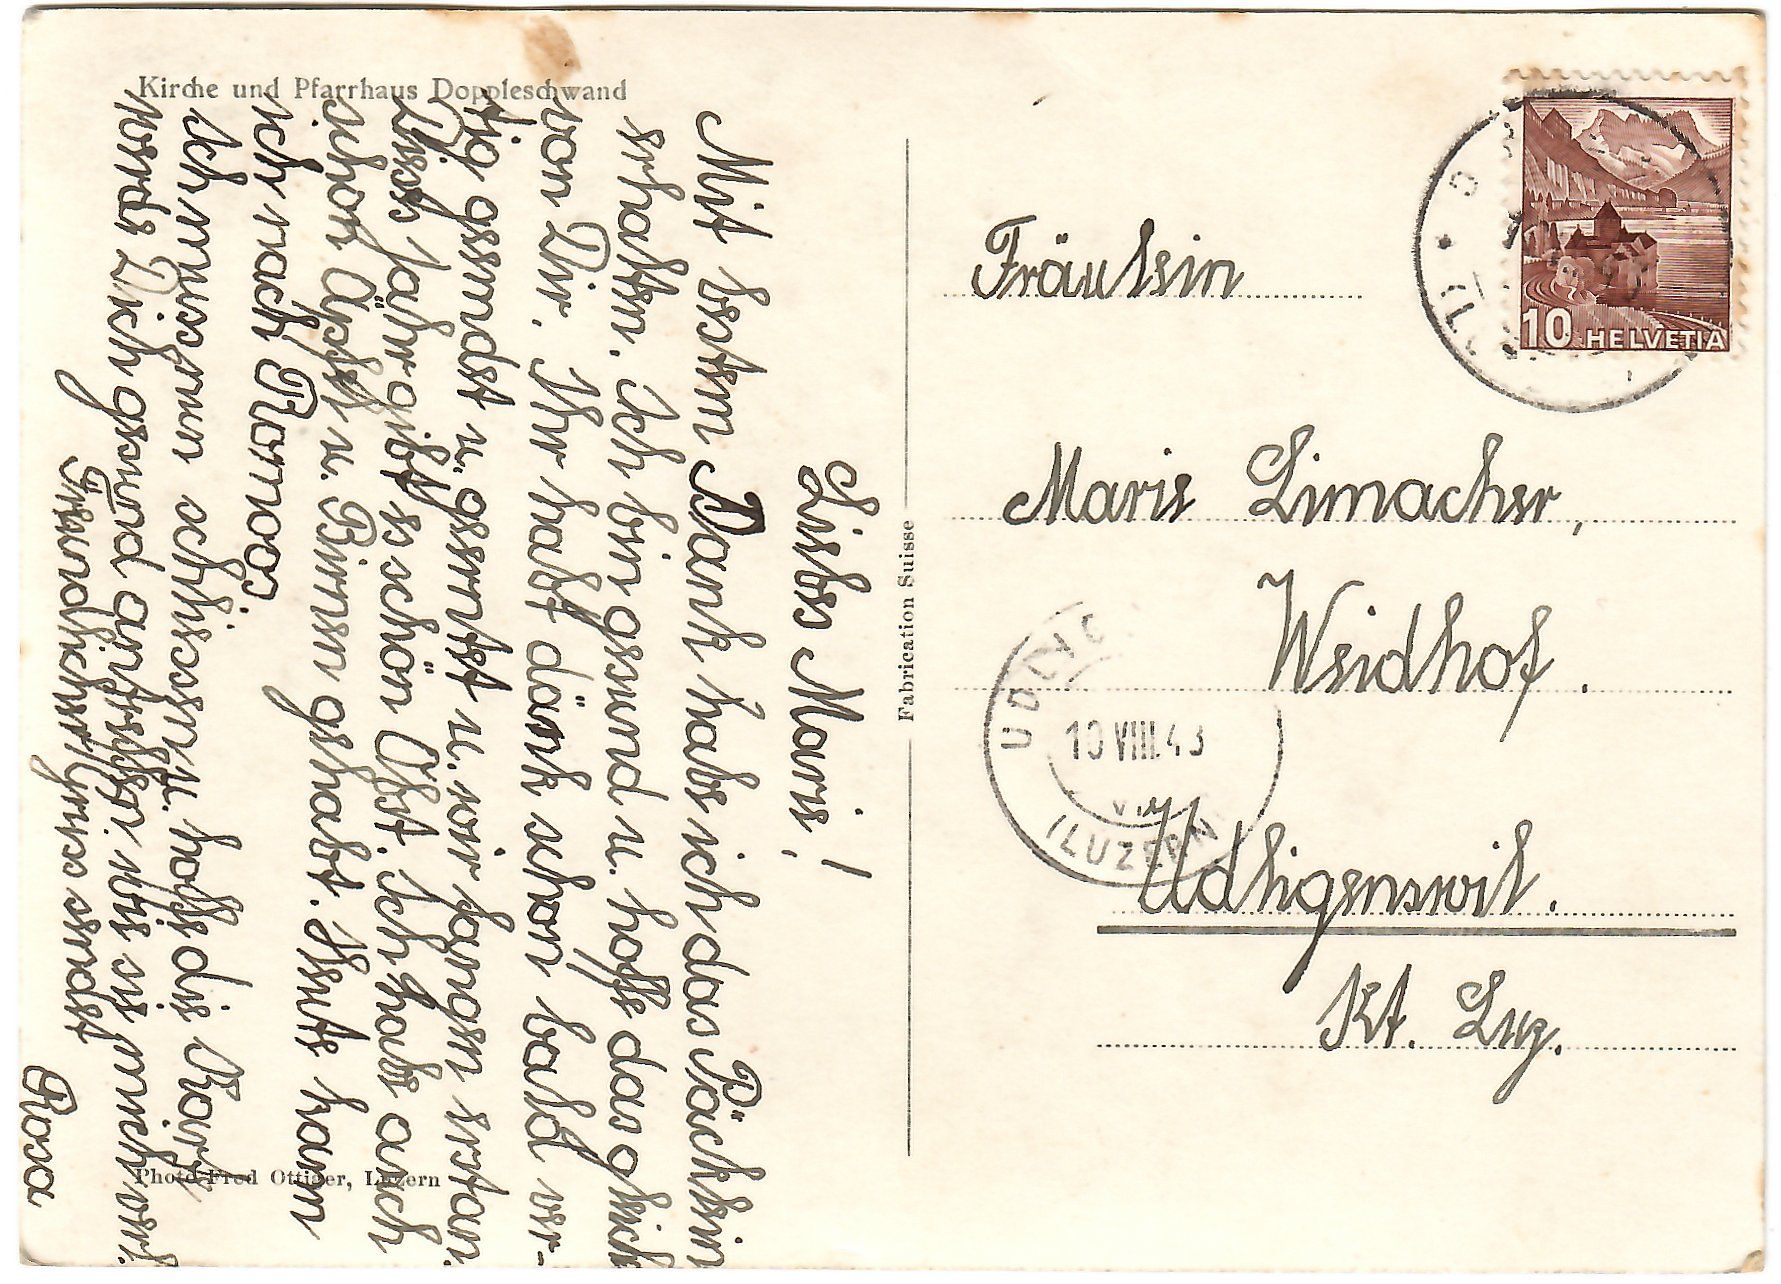 Kirche und Pfarrhaus Doppleschwand
Liebes Marie, !
Mit bestem Dank habe ich das Päcklein
erhalten. Ich bin gesund u. hoffe das gleich
von Dir. Ihr habt dänk schon bald ver-
tig gemdet u. gerntet u. wir fangen erst an.
Diess Jahr gibt es schön Obst. Ich habe auch
schon Äpfel u. Birnen gehabt. Heute kam
ich nach Romoos
Ich muss nun schliessen u. hoffe die
werde Dich gesund antreffen. wie sie mich verl.
Freundlicher Gruss sendet
Rosa
Photo Fred Ottiger, Luzern
Fabrication Suisse
10 HELVETIA
Fräulein
Marie Limacher,
Weidhof.
Udligenswil.
Kt. Luz.
10 VIII.43
(LUZERN